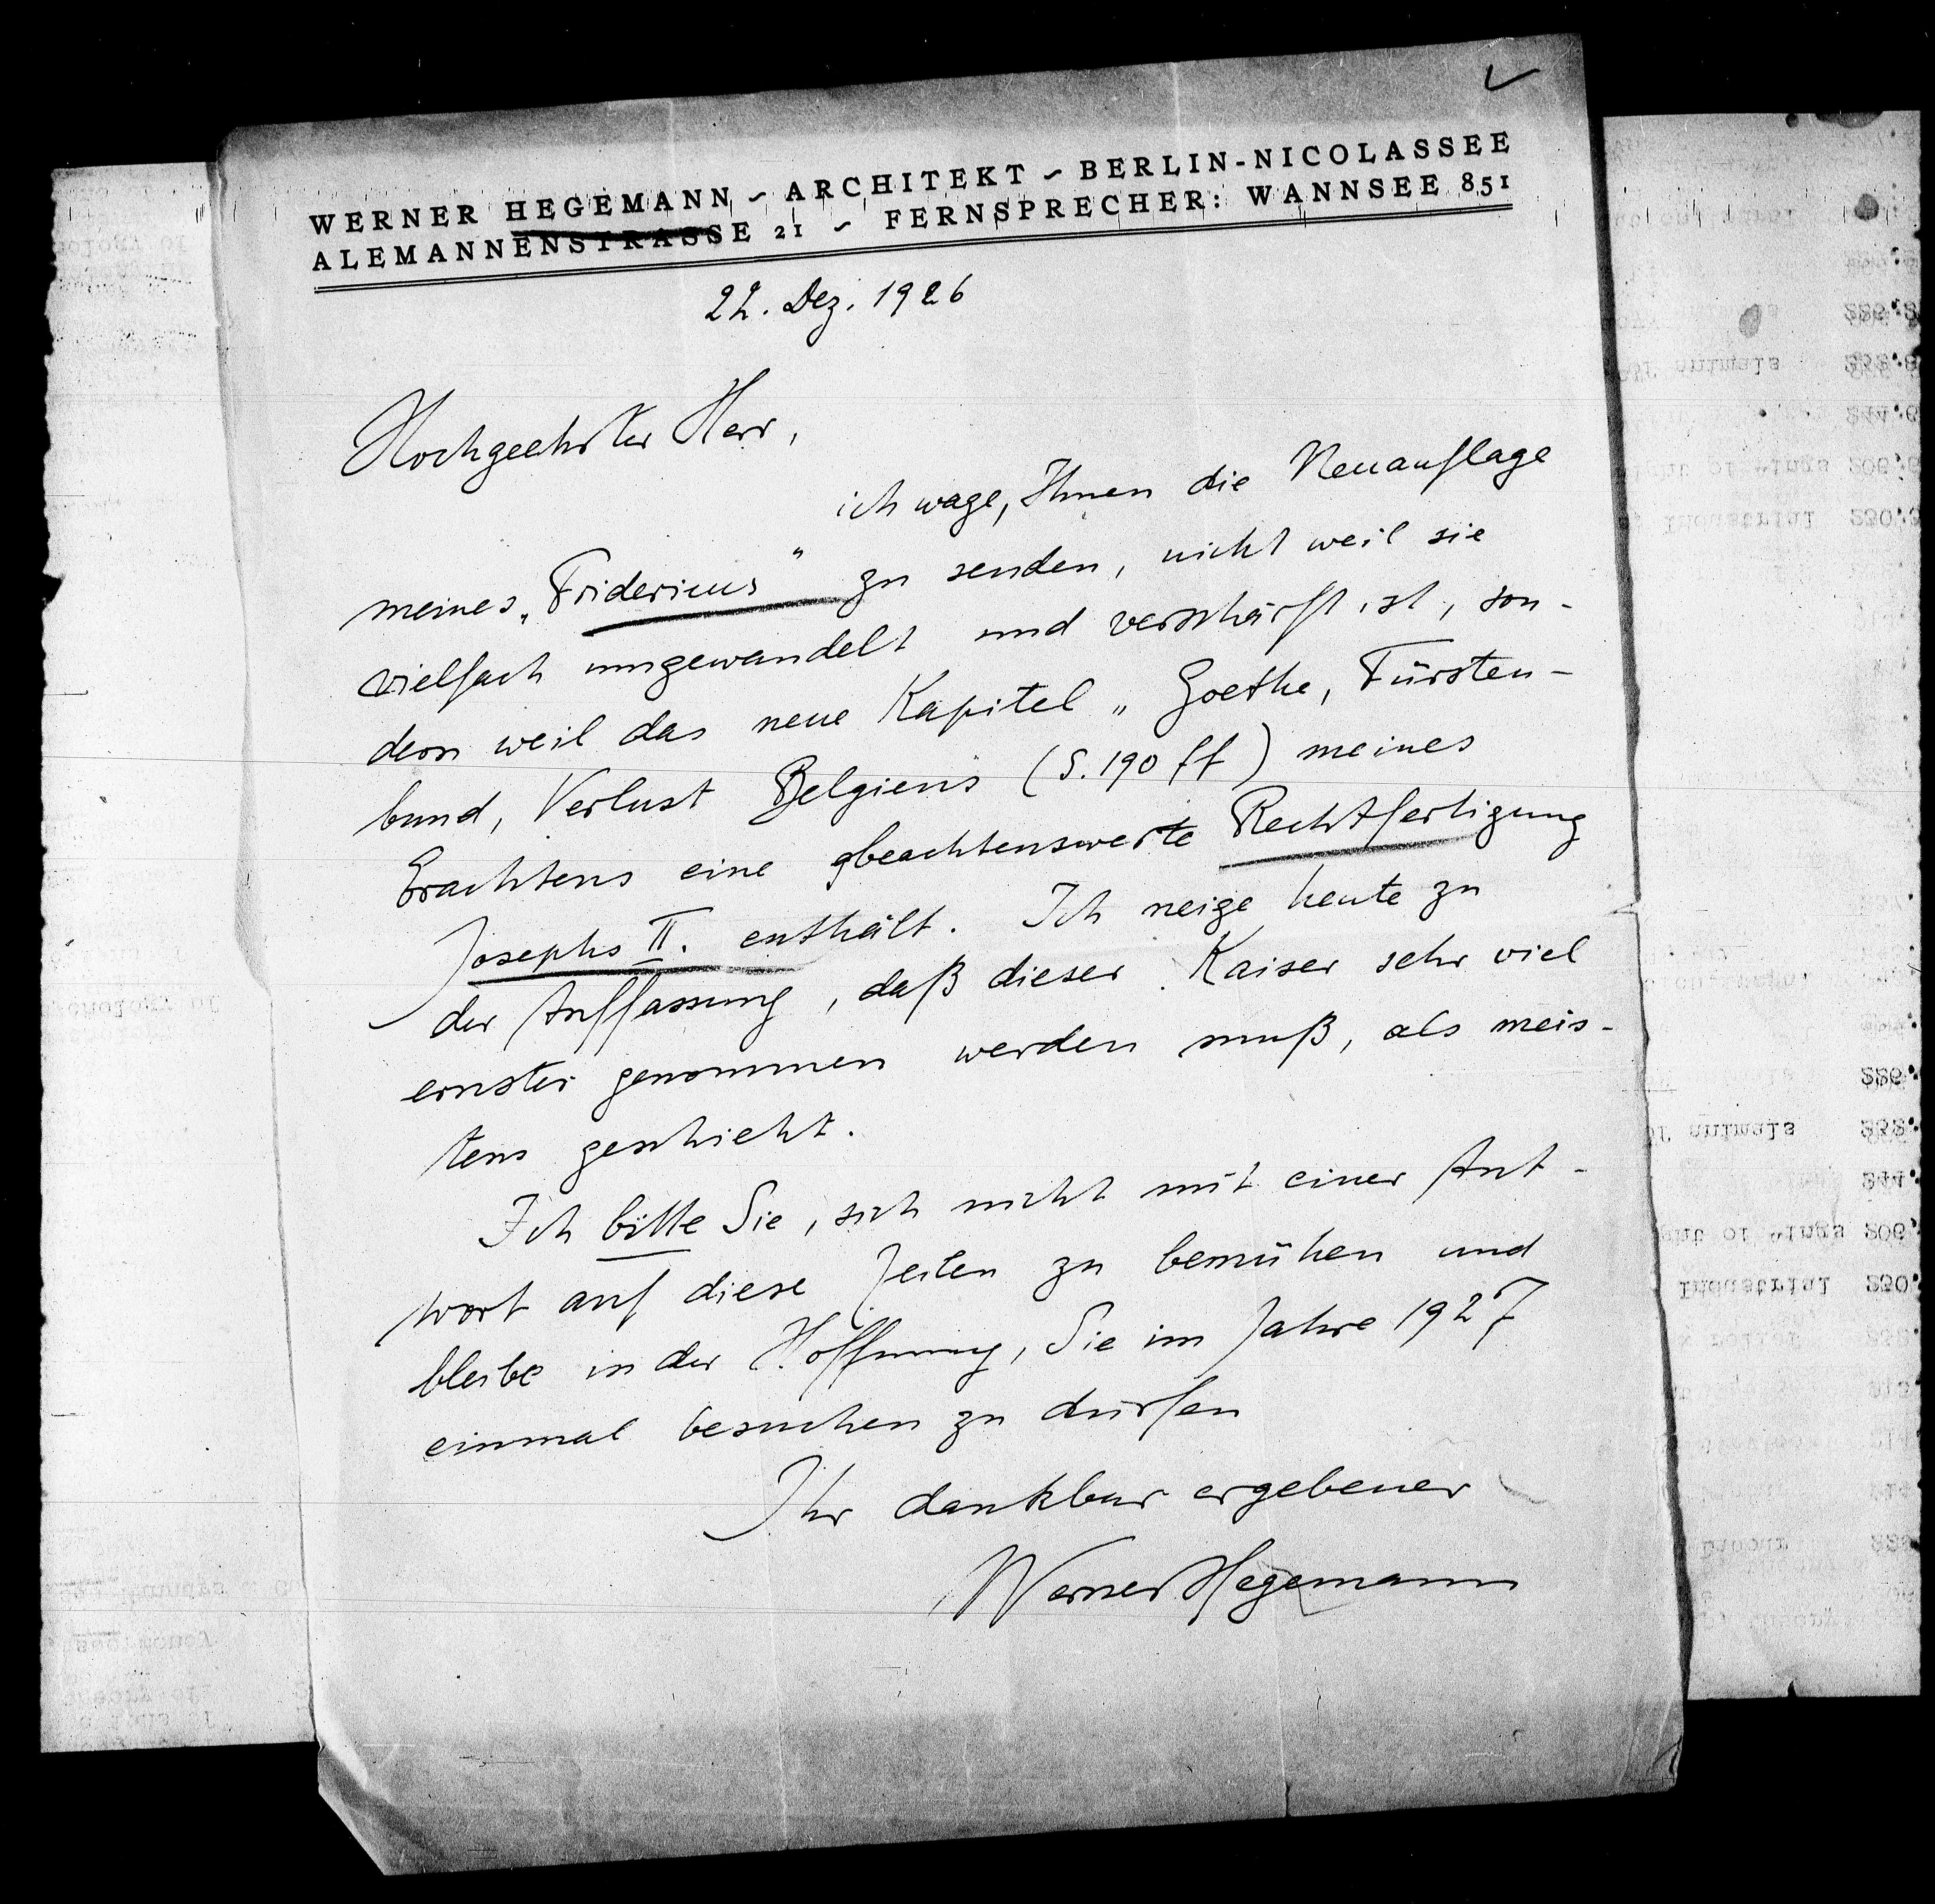 WERNER HEGEMANN ~ ARCHITEKT ~ BERLIN-NICOLASSEE
ALEMANNENSTRASSE 21 ~ FERNSPRECHER: WANNSEE 851
22. Dez. 1926
Hochgeehrter Herr,
ich wage, Ihnen die Neuauflage
meines „Fridericus" zu senden, nicht weil sie
vielfach umgewandelt und verschärft ist, son-
dern weil das neue Kapitel „Goethe, Fürsten-
bund, Verlust Belgiens (S. 190 ff) meines
Erachtens eine beachtenswerte Rechtfertigung
Josephs II. enthält. Ich neige heute zu
der Auffassung, daß dieser Kaiser sehr viel
ernster genommen werden muß, als meis-
tens geschieht.
Ich bitte Sie, sich nicht mit einer Ant-
wort auf diese Zeilen zu bemühen und
bleibe in der Hoffnung, Sie im Jahre 1927
einmal besuchen zu dürfen
Ihr dankbar ergebener
Werner Hegemann